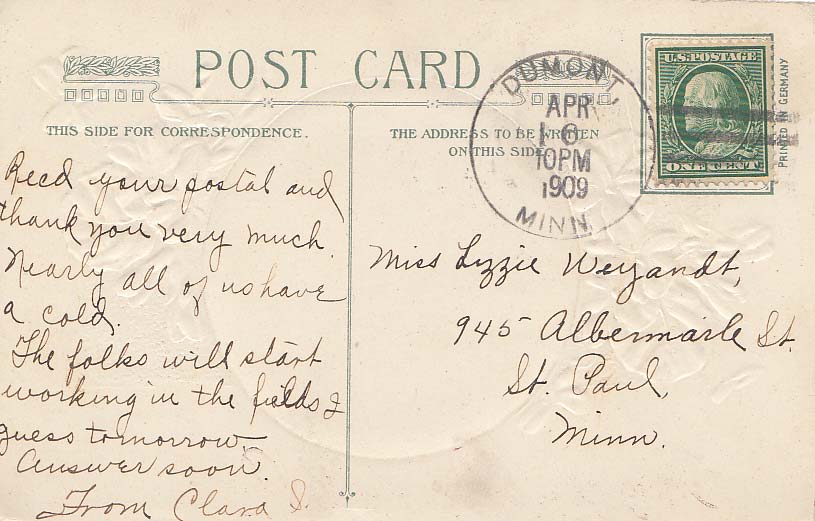 POST CARD
THIS SIDE FOR CORRESPONDENCE.
THE ADDRESS TO BE WRITTEN
ON THIS SIDE
DUMONT,
APR
16
10PM
1909
MINN.
U.S. POSTAGE
ONE CENT
PRINTED IN GERMANY
Recd your postal and
thank you very much.
Nearly all of us have
a cold.
The folks will start
working in the fields I
guess tomorrow.
Answer soon.
From Clara S.
Miss Lizzie Weyandt,
945 Albermarle St.
St. Paul,
Minn.